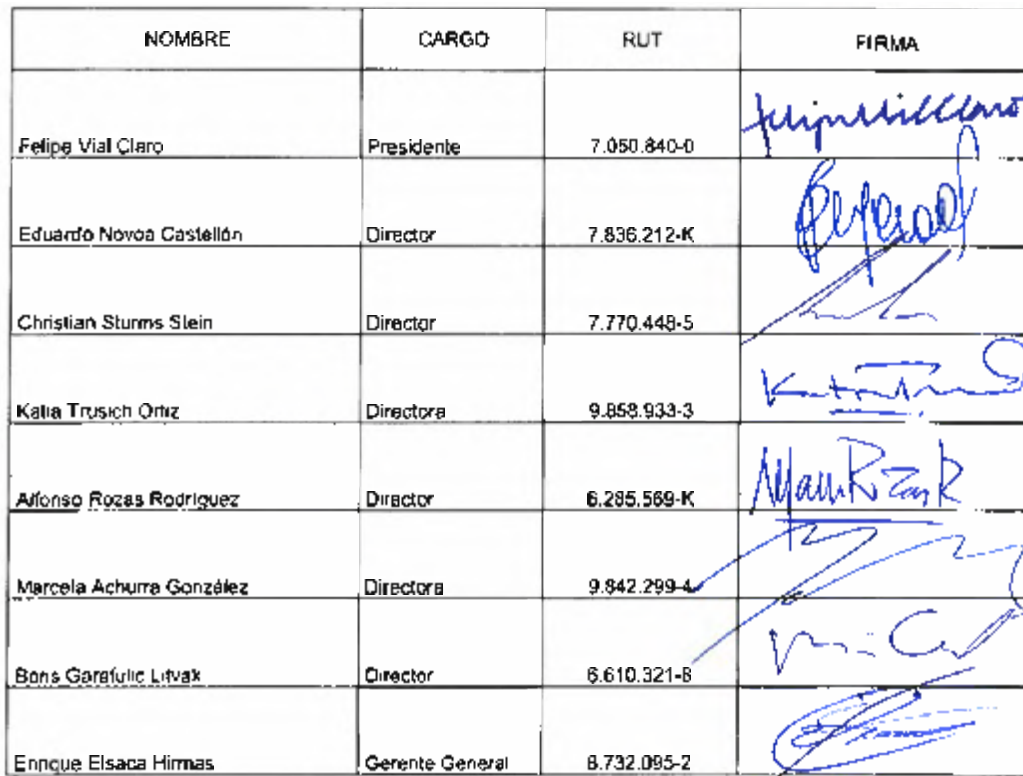 NOMBRE CARGO RUT FIRMA
Felipe Vial Claro Presidente 7.050.840-0
Eduardo Novoa Castellón Director 7.836.212-K
Christian Sturms Stein Director 7.770.448-5
Katia Trusich Ortiz Directora 9.858.933-3
Alfonso Rozas Rodríguez Director 6.285.569-K
Marcela Achurra González Directora 9.842.299-4
Boris Garafulic Litvak Director 6.610.321-8
Enrique Elsaca Hirmas Gerente General 8.732.095-2